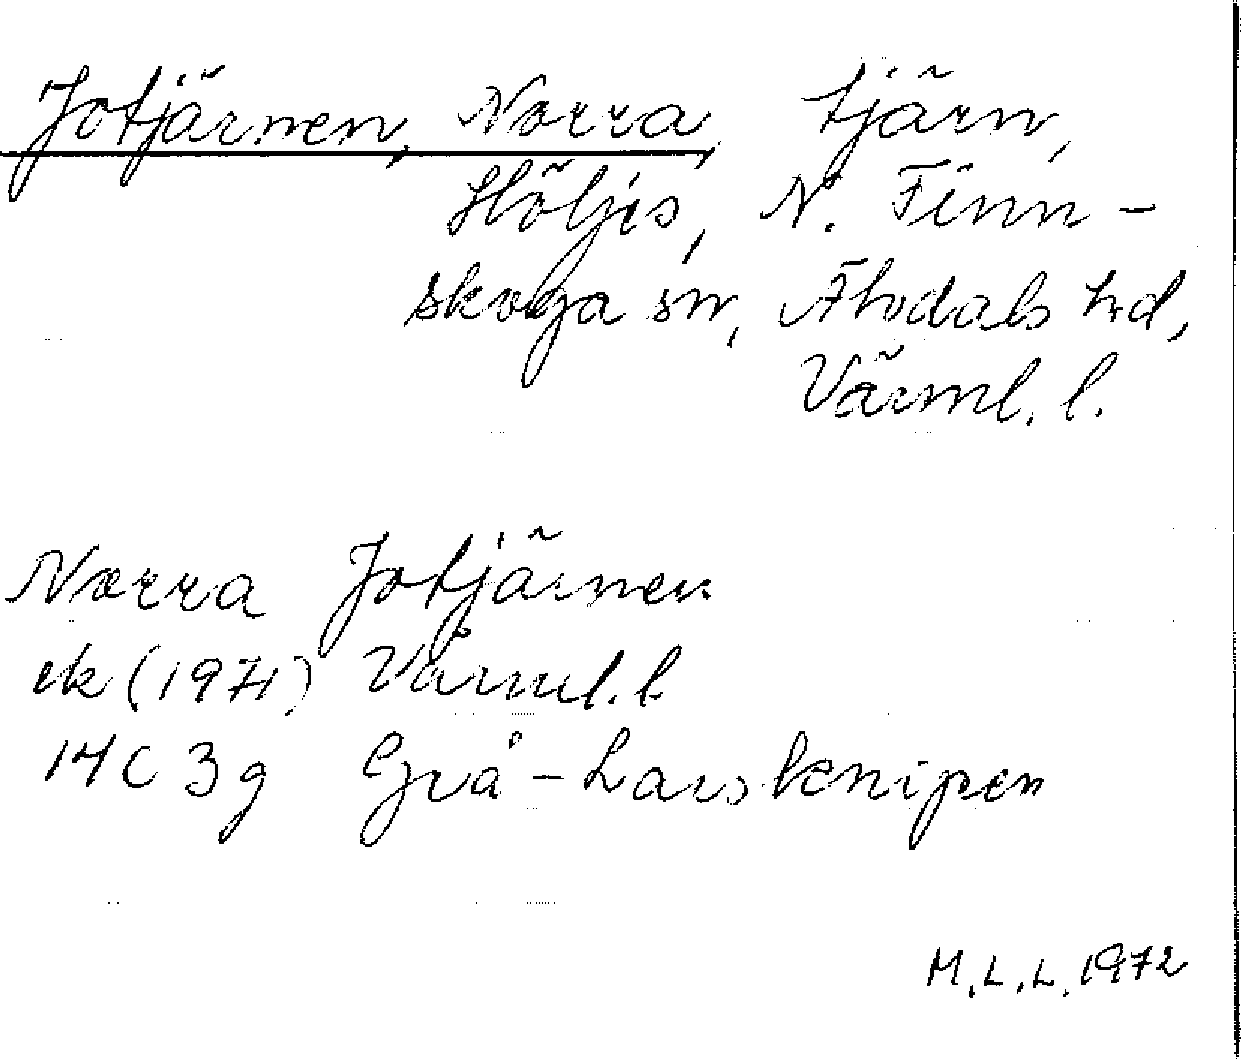 Jotjärnen, Norra, tjärn,
Höljes, N. Finn-
skoga sn, Älvdals hd,
Värml. l.
Norra Jotjärnen
ek (1971) Värml. l.
14C 3g Grå-Larsknipen
M.L.L. 1972